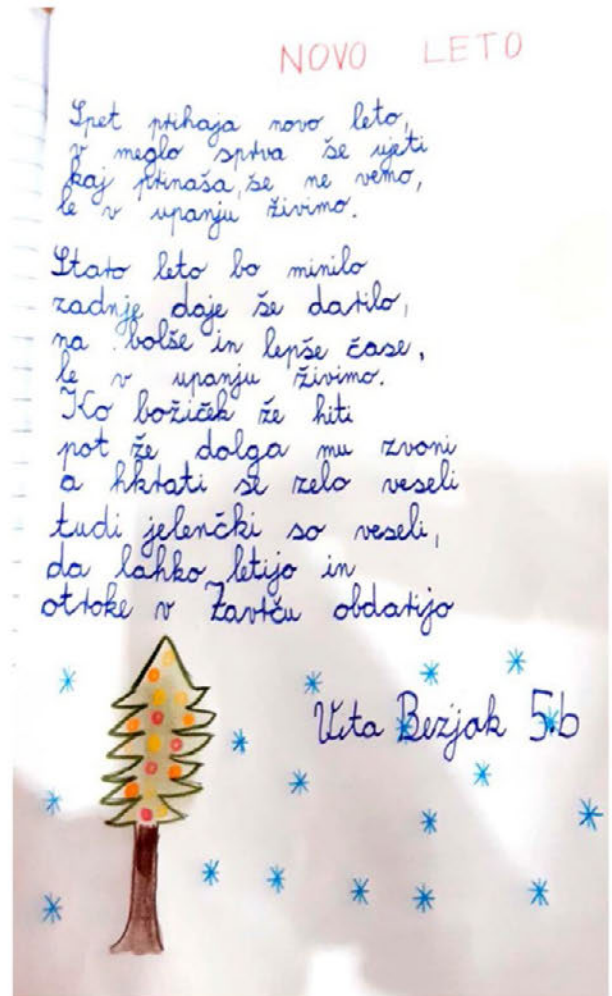 NOVO LETO
Spet prihaja novo leto,
v meglo sprva se ujeti
kaj prinaša, še ne vemo,
le v upanju živimo.
Staro leto bo minilo
zadnje daje še darilo,
na bolše in lepše čase,
le v upanju živimo.
Ko božiček že hiti
pot že dolga mu zvoni
a hkrati se zelo veseli
tudi jelenčki so veseli,
da lahko letijo in
otroke v Zavrču obdarijo
Vita Bezjak 5.b